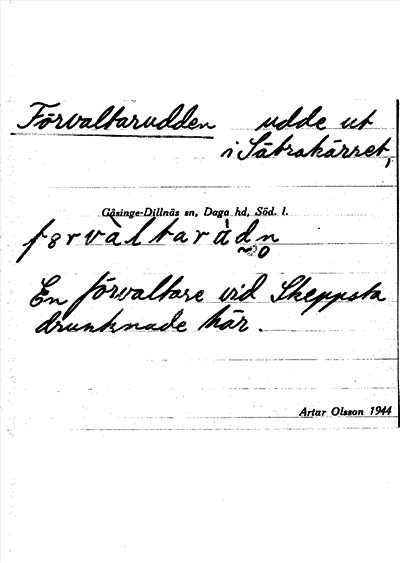 Förvaltarudden udde ut
i Sätrakärret,
Gåsinge-Dillnäs sn, Daga hd, Söd. l.
En förvaltare vid Skeppsta
drunknade här.
Artur Olsson 1944